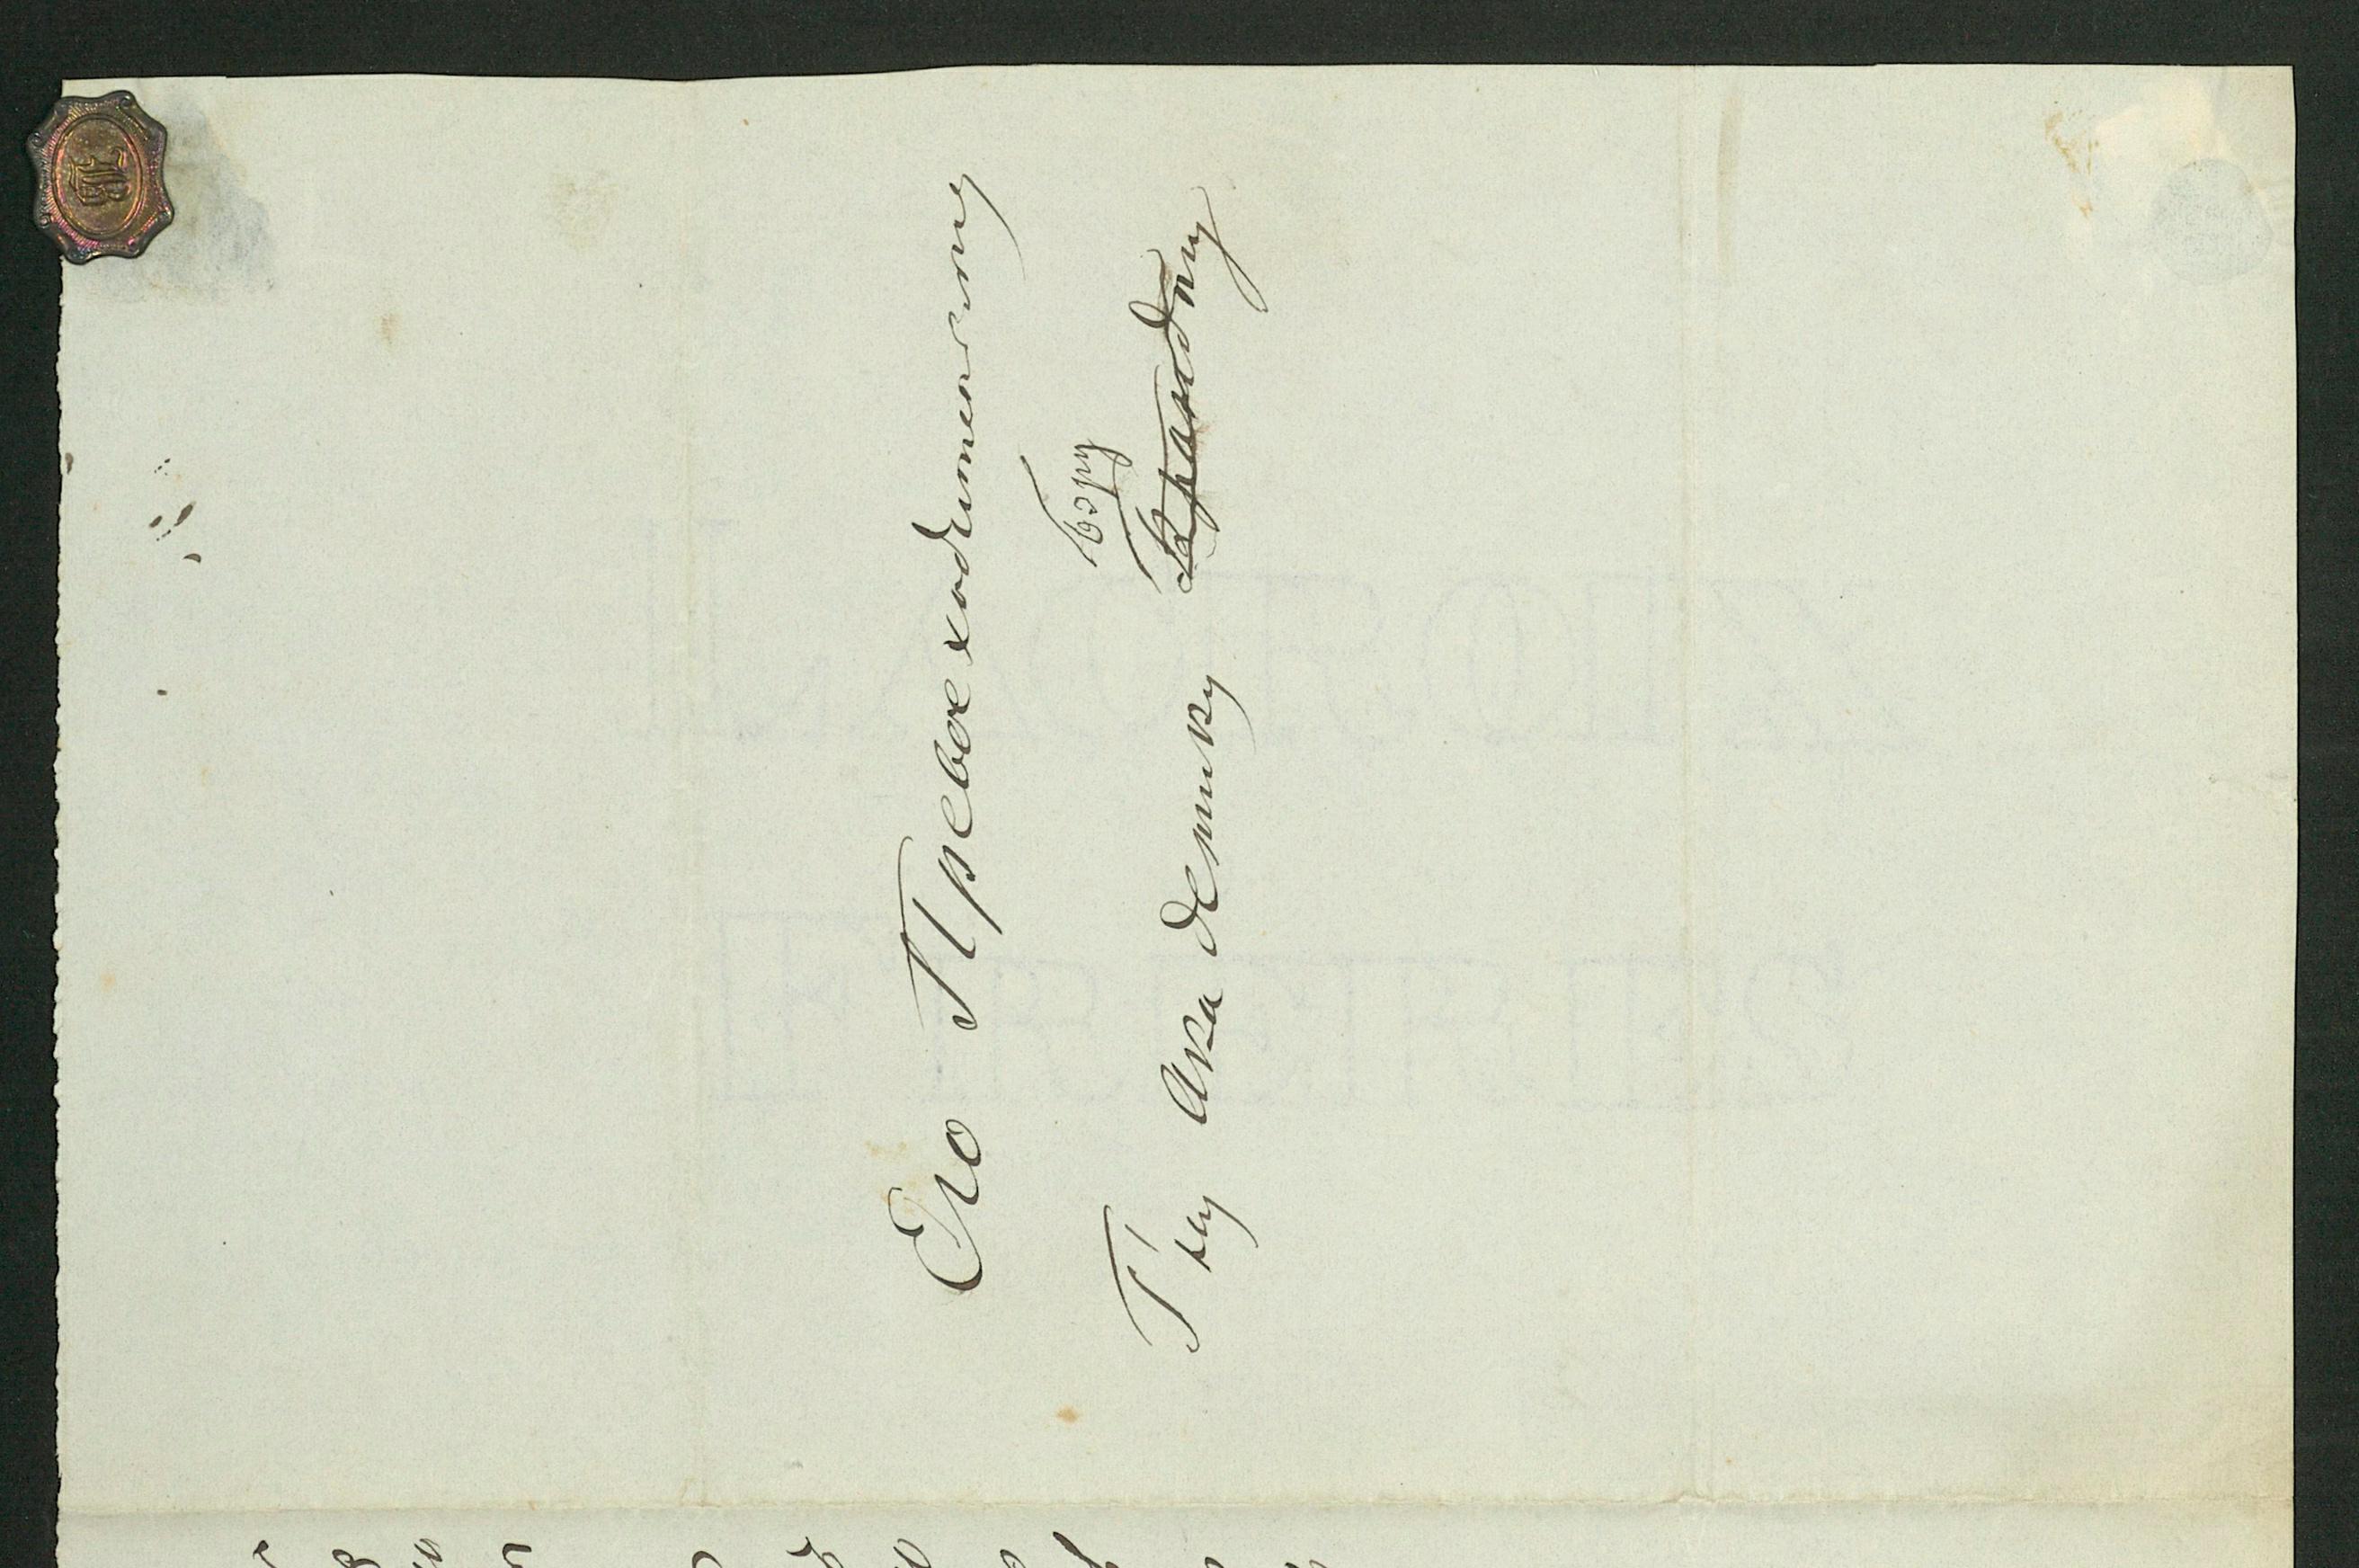 Его Превосходительству
Бэру
Г-ну Академику Брандту